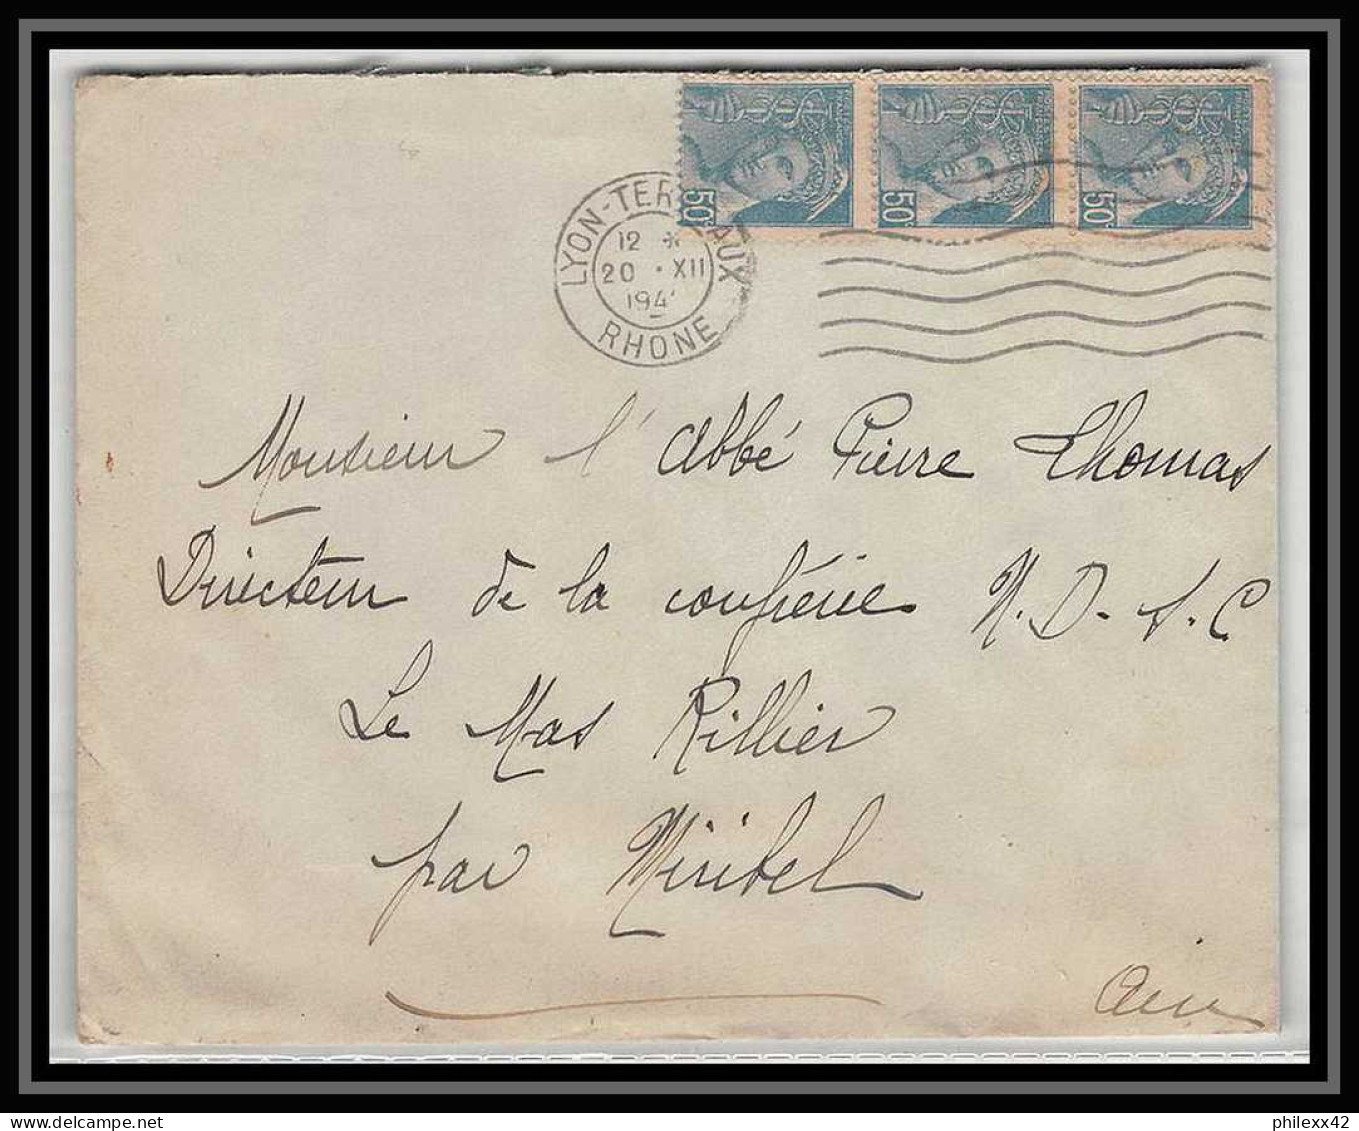 50c 50c 50c
LYON-TERREAUX
12 *
20 · XII
194
RHONE
Monsieur l'Abbé Pierre Thomas
Directeur de la confrérie N.D.-S.C
Le Mas Rillier
par Miribel
Ain
philexx42